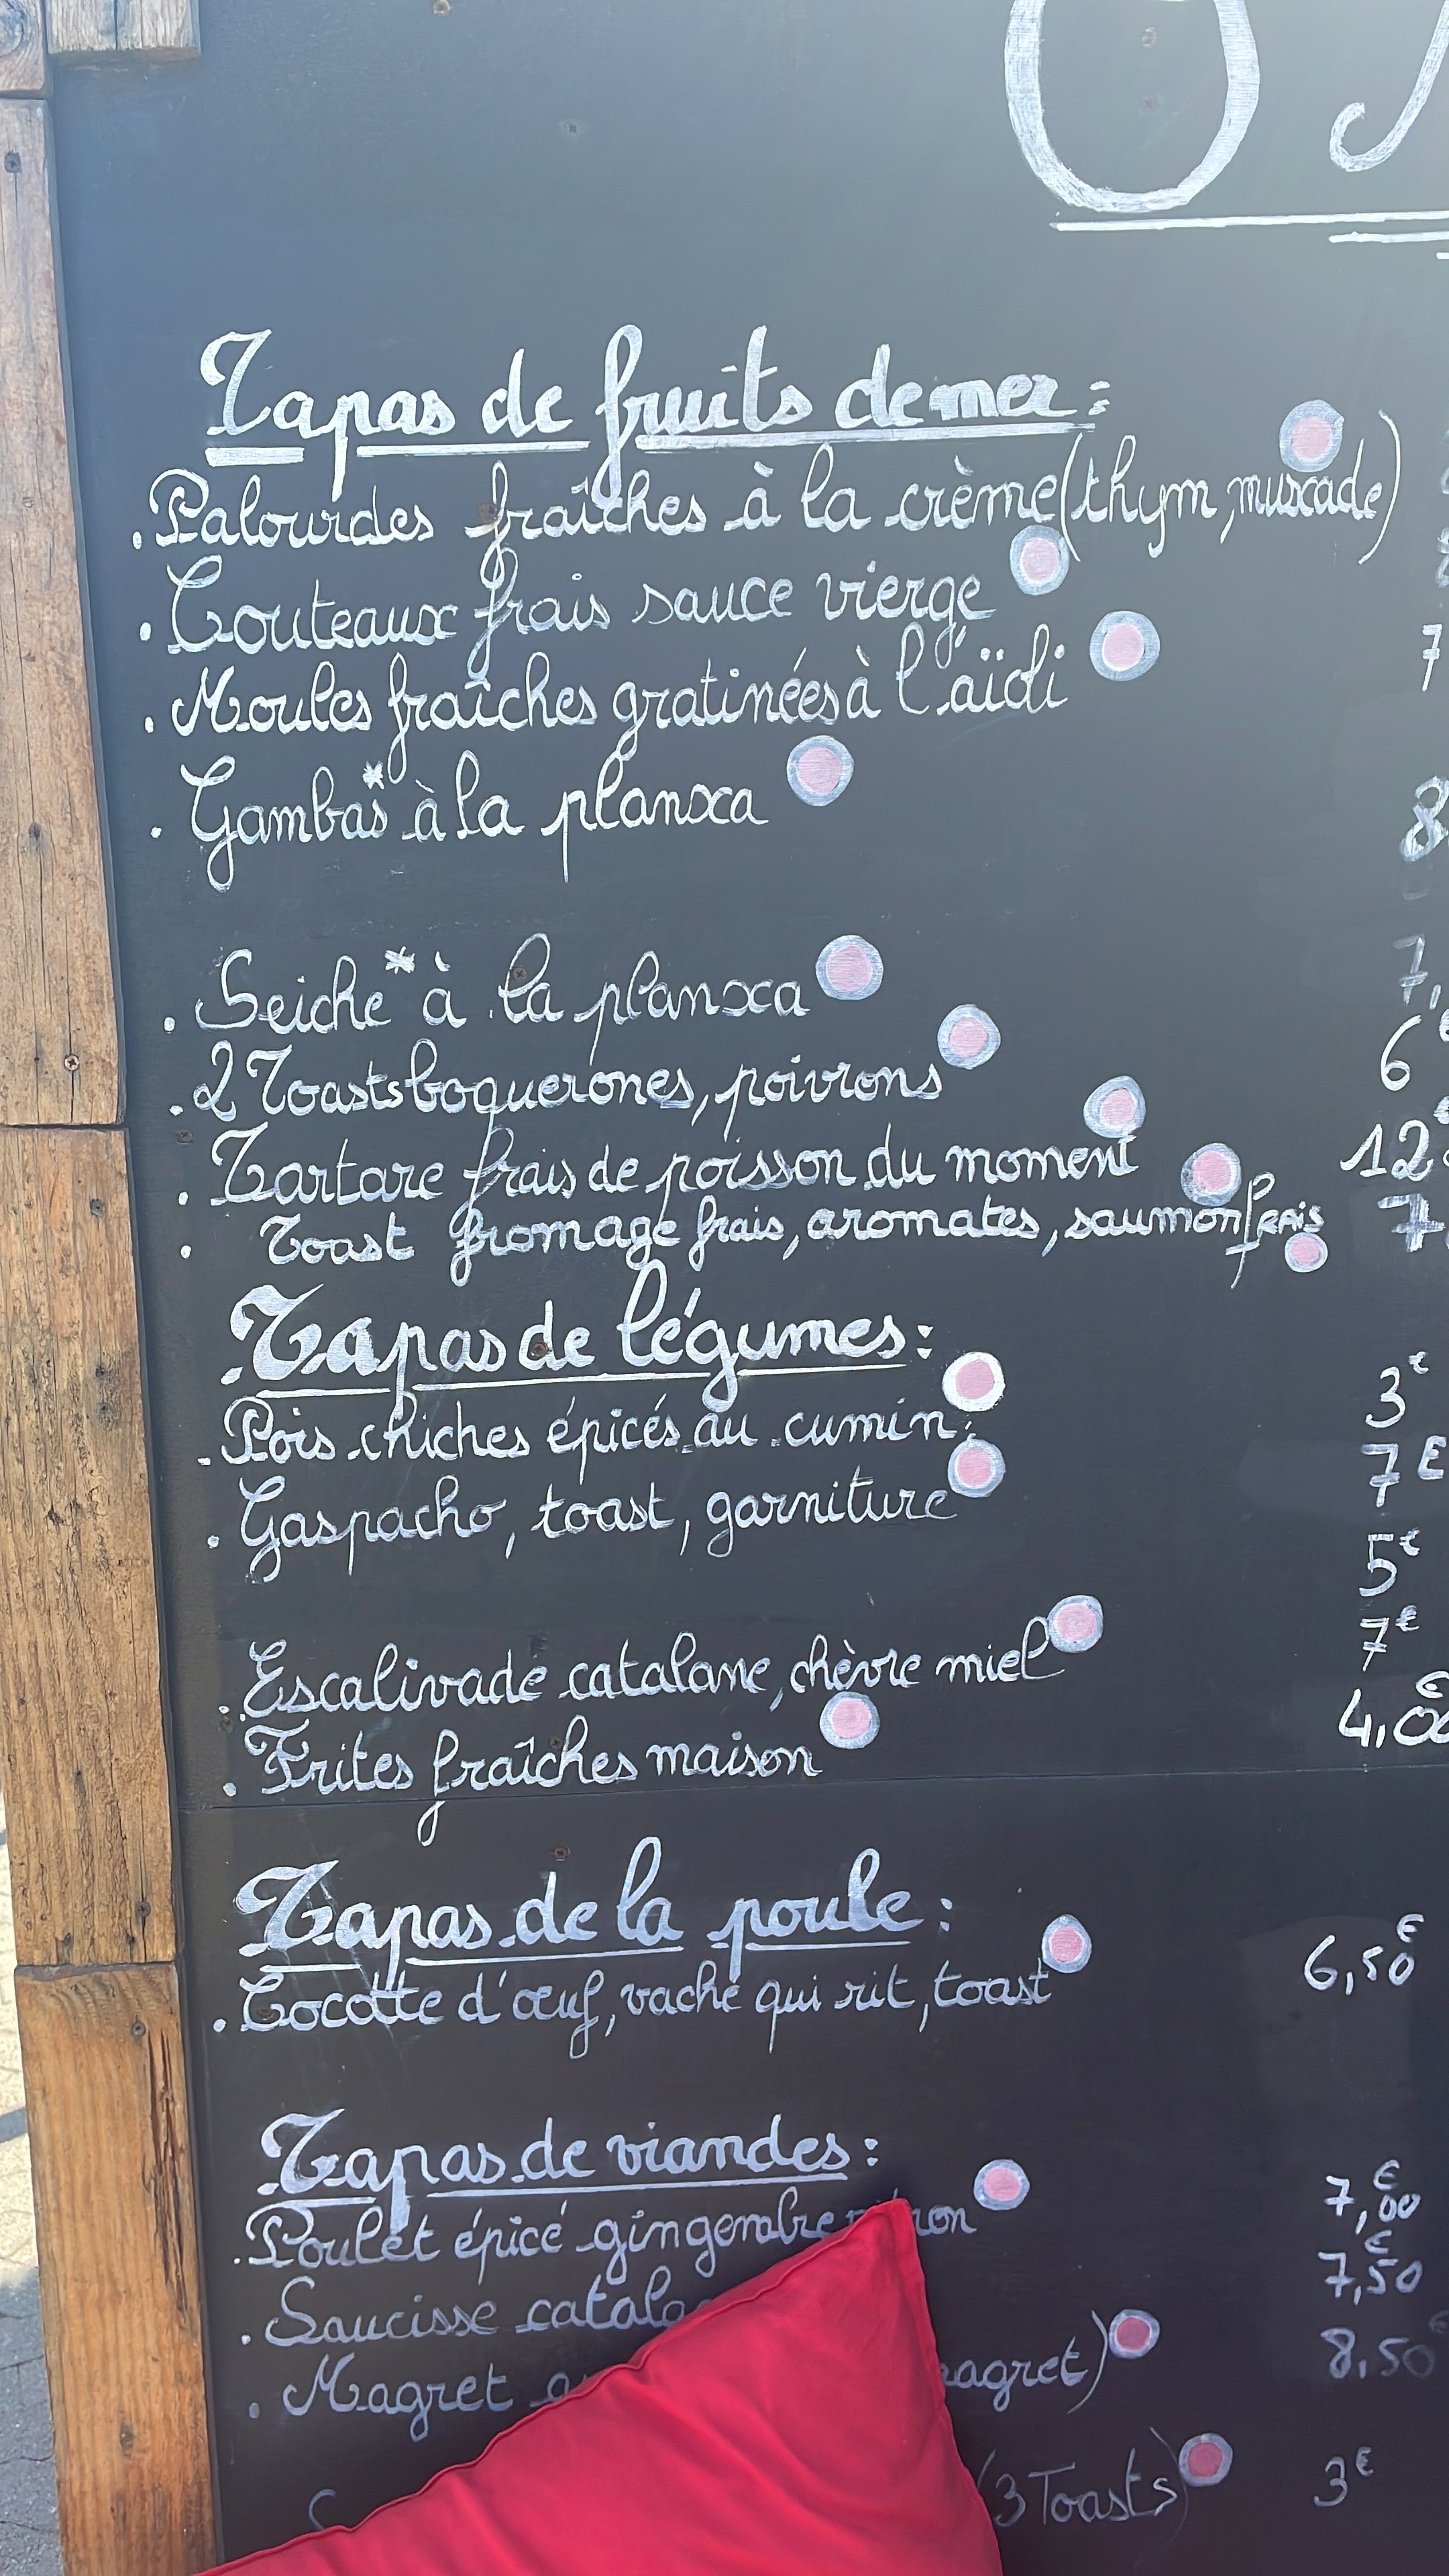 Tapas de fruits de mer :
. Palourdes fraîches à la crème (thym, muscade)
. Couteaux frais sauce vierge
. Moules fraîches gratinées à l'aïoli 7
. Gambas* à la planxa 8
. Seiche* à la planxa 7,
. 2 Toasts boquerones, poivrons 6
. Tartare frais de poisson du moment 12
. Toast fromage frais, aromates, saumon frais 7
. Tapas de légumes :
. Pois chiches épicés au cumin. 3€
. Gaspacho, toast, garniture 7€
5€
. Escalivade catalane, chèvre miel 7€
. Frites fraîches maison 4,00€
Tapas de la poule :
. Cocotte d'œuf, vache qui rit, toast 6,50€
Tapas de viandes :
. Poulet épicé gingembre 7,00€
. Saucisse 7,50€
. Magret magret) 8,50€
(3 Toasts) 3€